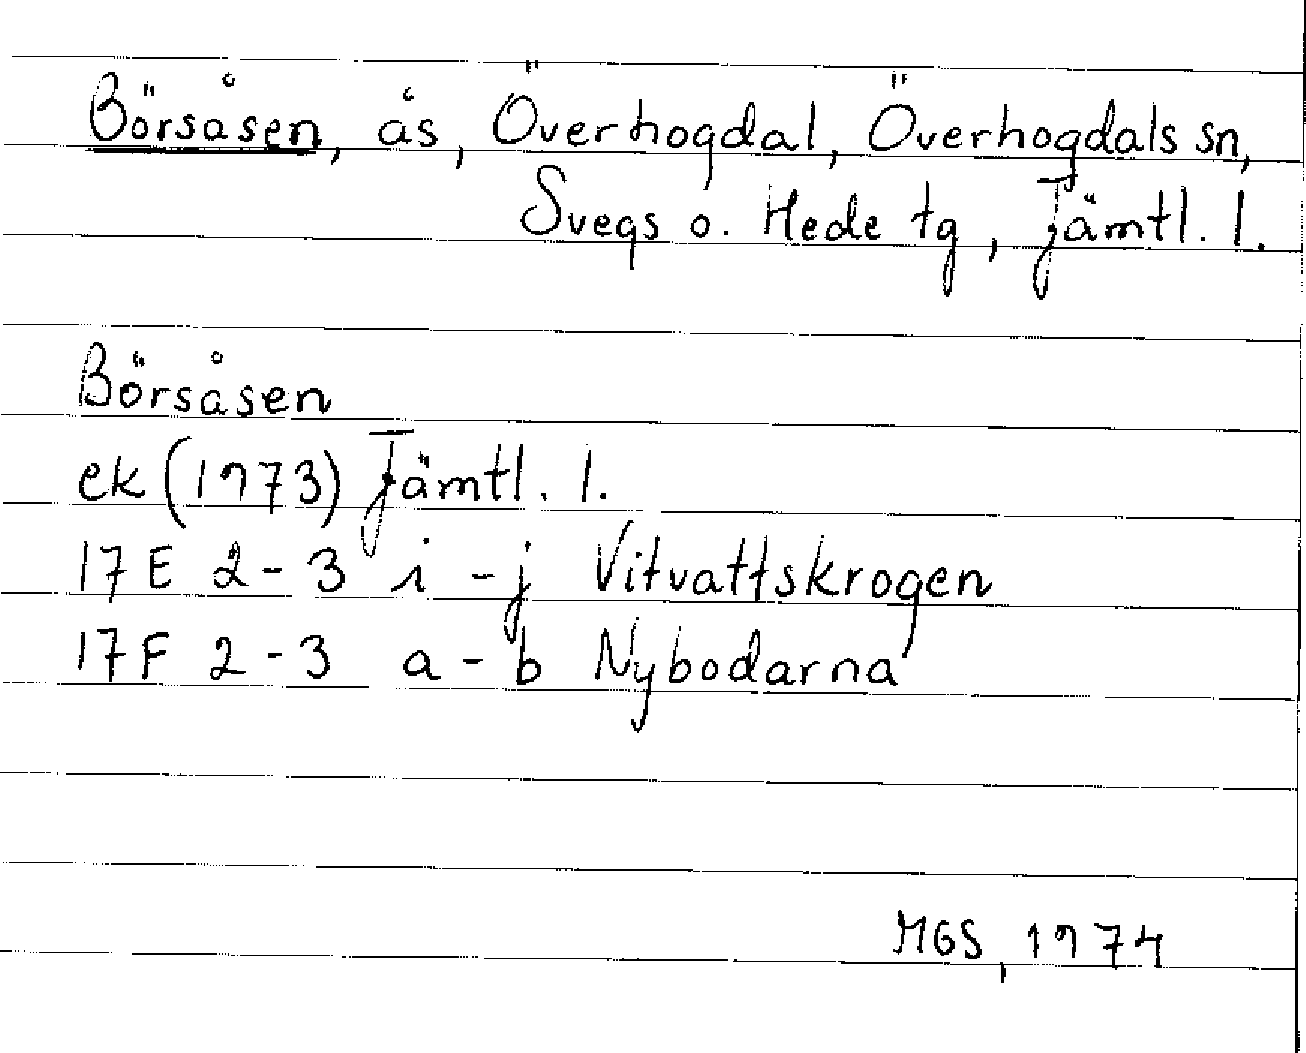 Börsåsen, ås, Överhogdal, Överhogdals sn,
Svegs o. Hede tg, Jämtl. l.
Börsåsen
ek (1973) Jämtl. l.
17E 2-3 i-j Vitvattskrogen
17F 2-3 a-b Nybodarna
MGS, 1974